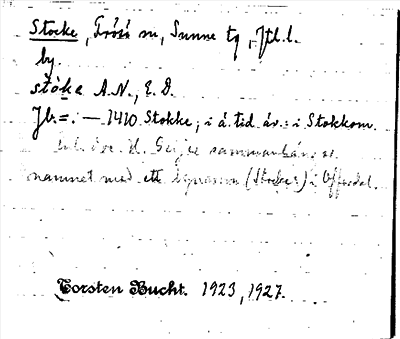 Stocke, Frösö sn, Sunne tg, Jtl. l.
by.
stòke A.N., E.D.
Jb.=. — 1410 Stokke; i ä. tid äv.: i Stokkom.
sammanhän
namnet med ett (Stocke) i Offerdal.
Torsten Bucht. 1923, 1927.